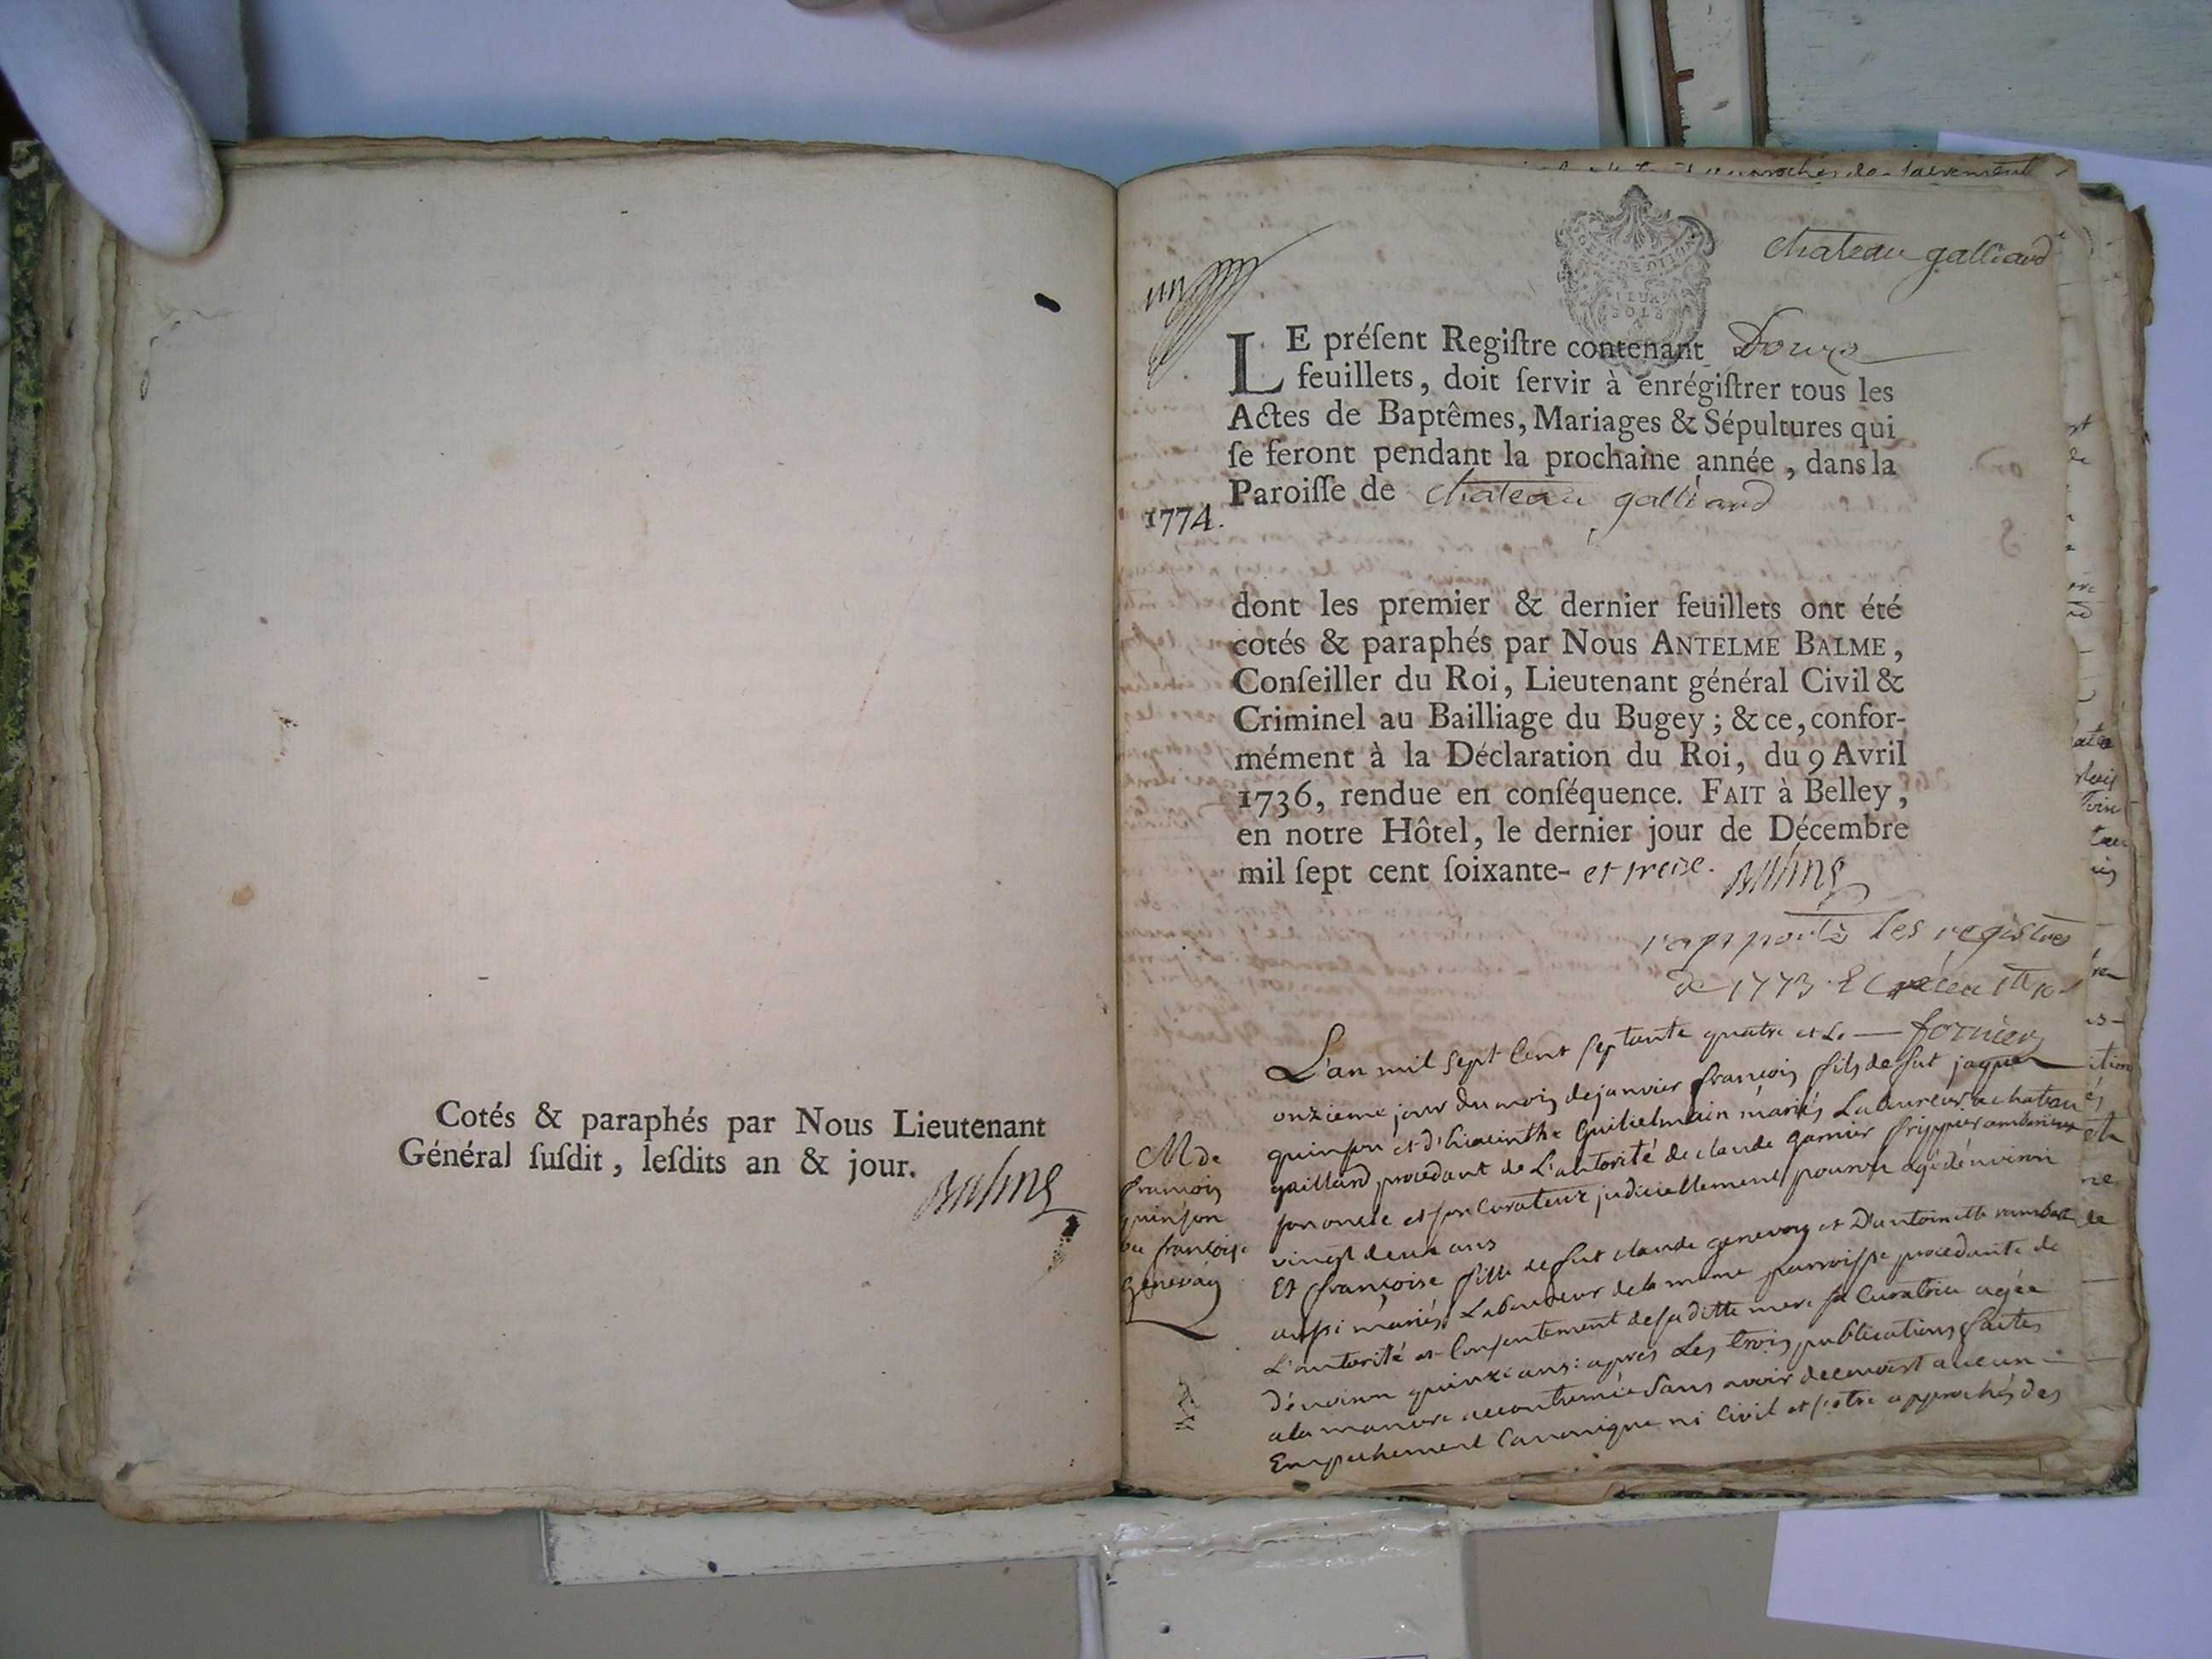 Cotés & paraphés par Nous Lieutenant
Général ſuſdit, leſdits an & jour.
Balme
chateau galliard
un
GEN. DE DIJON
DEUX
SOLS
LE préſent Regiſtre contenant Douze
feuillets, doit ſervir à enrégiſtrer tous les
Actes de Baptêmes, Mariages & Sépultures qui
ſe feront pendant la prochaine année, dans la
Paroiſſe de chateau galliard
1774.
dont les premier & dernier feuillets ont été
cotés & paraphés par Nous ANTELME BALME,
Conſeiller du Roi, Lieutenant général Civil &
Criminel au Bailliage du Bugey; & ce, confor-
mément à la Déclaration du Roi, du 9 Avril
1736, rendue en conſéquence. FAIT à Belley,
en notre Hôtel, le dernier jour de Décembre
mil ſept cent ſoixante- et treize. Balme
rapporté les registres
de 1773
fornier
L'an mil sept cent septante quatre et le
onzieme jour du mois de janvier françois fils de fut jaques
quinson et d'hiacinthe Guilielmain mariés Laboureur a chateau
gaillard procedant de L'autorité de claude garnier frippier
son oncle et son curateur judiciellement pourvu agé d'environ
vingt deux ans
Et françoise fille de fut claude genevay et D'antoinette rambaz
aussi mariés Laboureur de la meme parroisse procedante de
L'autorité et consentement de sa ditte mere sa curatrice agée
d'environ quinze ans: apres Les trois publications faites
a la maniere accoutumée sans avoir decouvert aucun
Empechement canonique ni civil et s'etre approchés des
M de
françois
quinson
françoise
genevay